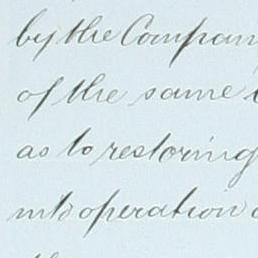 by the Compan
of the same
as to restoring
into operation